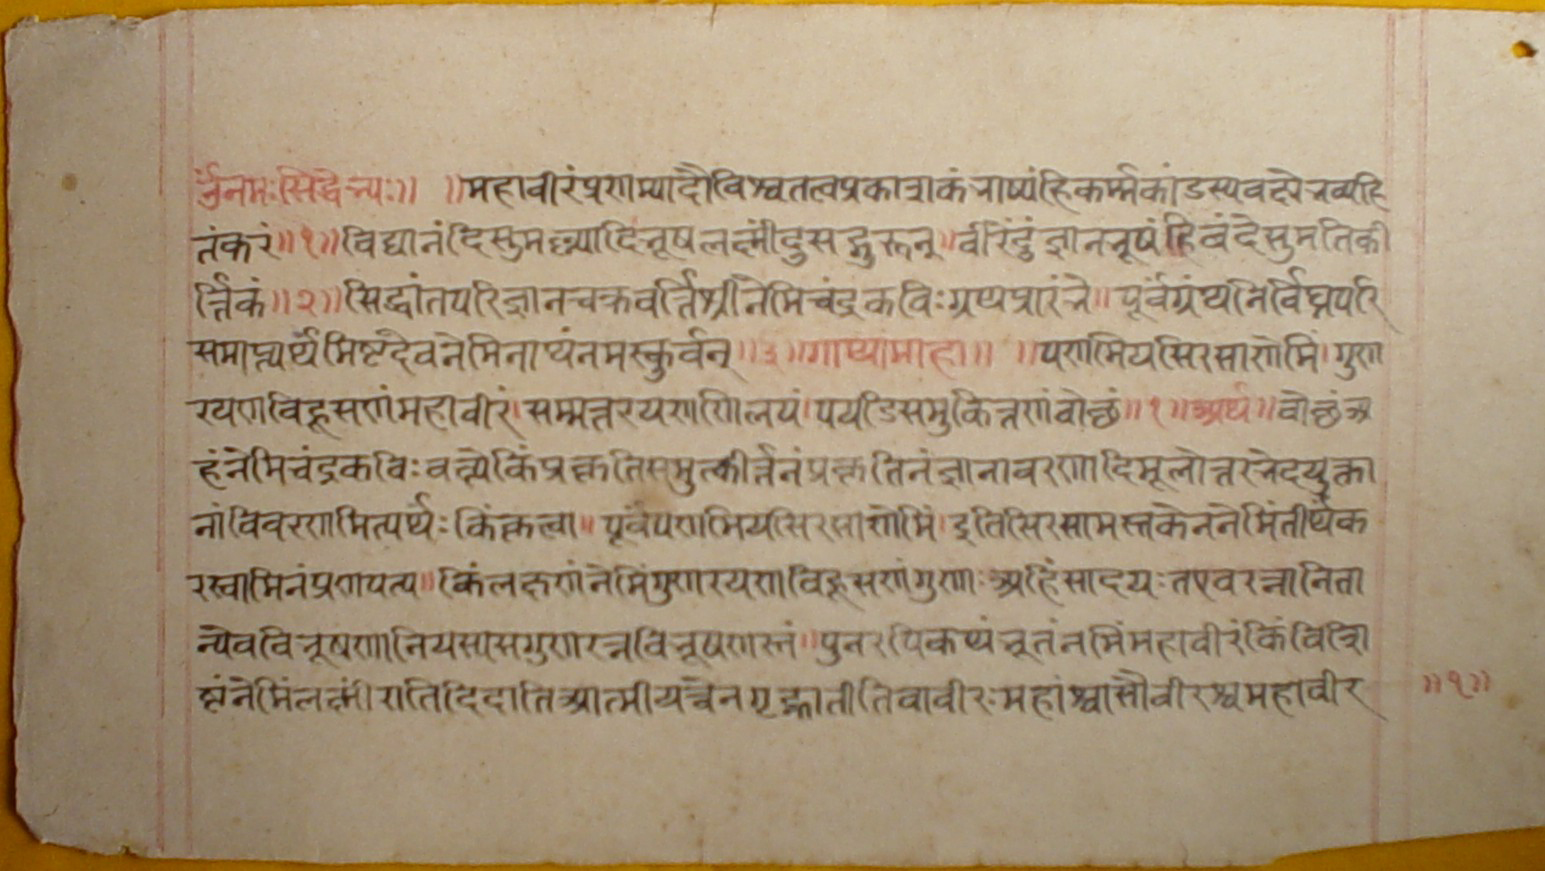 ॐनमःसिद्धेभ्यः॥ ॥महावीरंप्रणम्यादौविश्वतत्वप्रकाशकंभाष्यंहिकर्म्मकांडस्यवक्ष्येभव्यहि
तंकरं॥१॥विद्यानंदिसुमल्ल्यादिभूषलक्ष्मींदुसद्गुरून्॥वीरेंदुंज्ञानभूषंहिवंदेसुमतिकी
र्त्तिकं॥२॥सिद्धांतपरिज्ञानचक्रवर्त्तिश्रीनेमिचंद्रकविःग्रथप्रारंभे॥पूर्वंग्रंथनिर्विघ्नपरि
समाप्त्यर्थंमिष्टदेवनेमिनाथंनमस्कुर्वन्॥३॥गाथामाहा॥ ॥पणमियसिरसाणेमिं।गुण
रयणविहूसणंमहावीरं।सम्मत्तरयणणिलयं।पयडिसमुकित्तणंवोछं॥१॥अर्थ॥वोछंअ
हंनेमिचंद्रकविःवक्ष्येकिंप्रकृतिसमुत्कीर्त्तनंप्रकृतिनंज्ञानावरणादिमूलोत्तरभेदयुक्ता
नांविवरणमित्यर्थः किंकृत्वा॥पूर्वंपणमियसिरसाणेमिं।इतिसिरसामस्तकेननेमिंतीर्थंक
रस्वामिनंप्रणपत्य॥किंलक्षणंनेमिंगुणरयणविहूसणंगुणाःअहिंसादयःतएवरत्नानिता
न्येवविभूषणानियस्यसगुणरत्नविभूषणस्तं॥पुनरपिकथंभूतंनमिंमहावीरंकिंविशि
ष्टंनेमिंलक्ष्मींरातिदिदातिआत्मीयत्वेनगृह्णातीतिवावीरःमहांश्चासौवीरश्चमहावीर
॥१॥